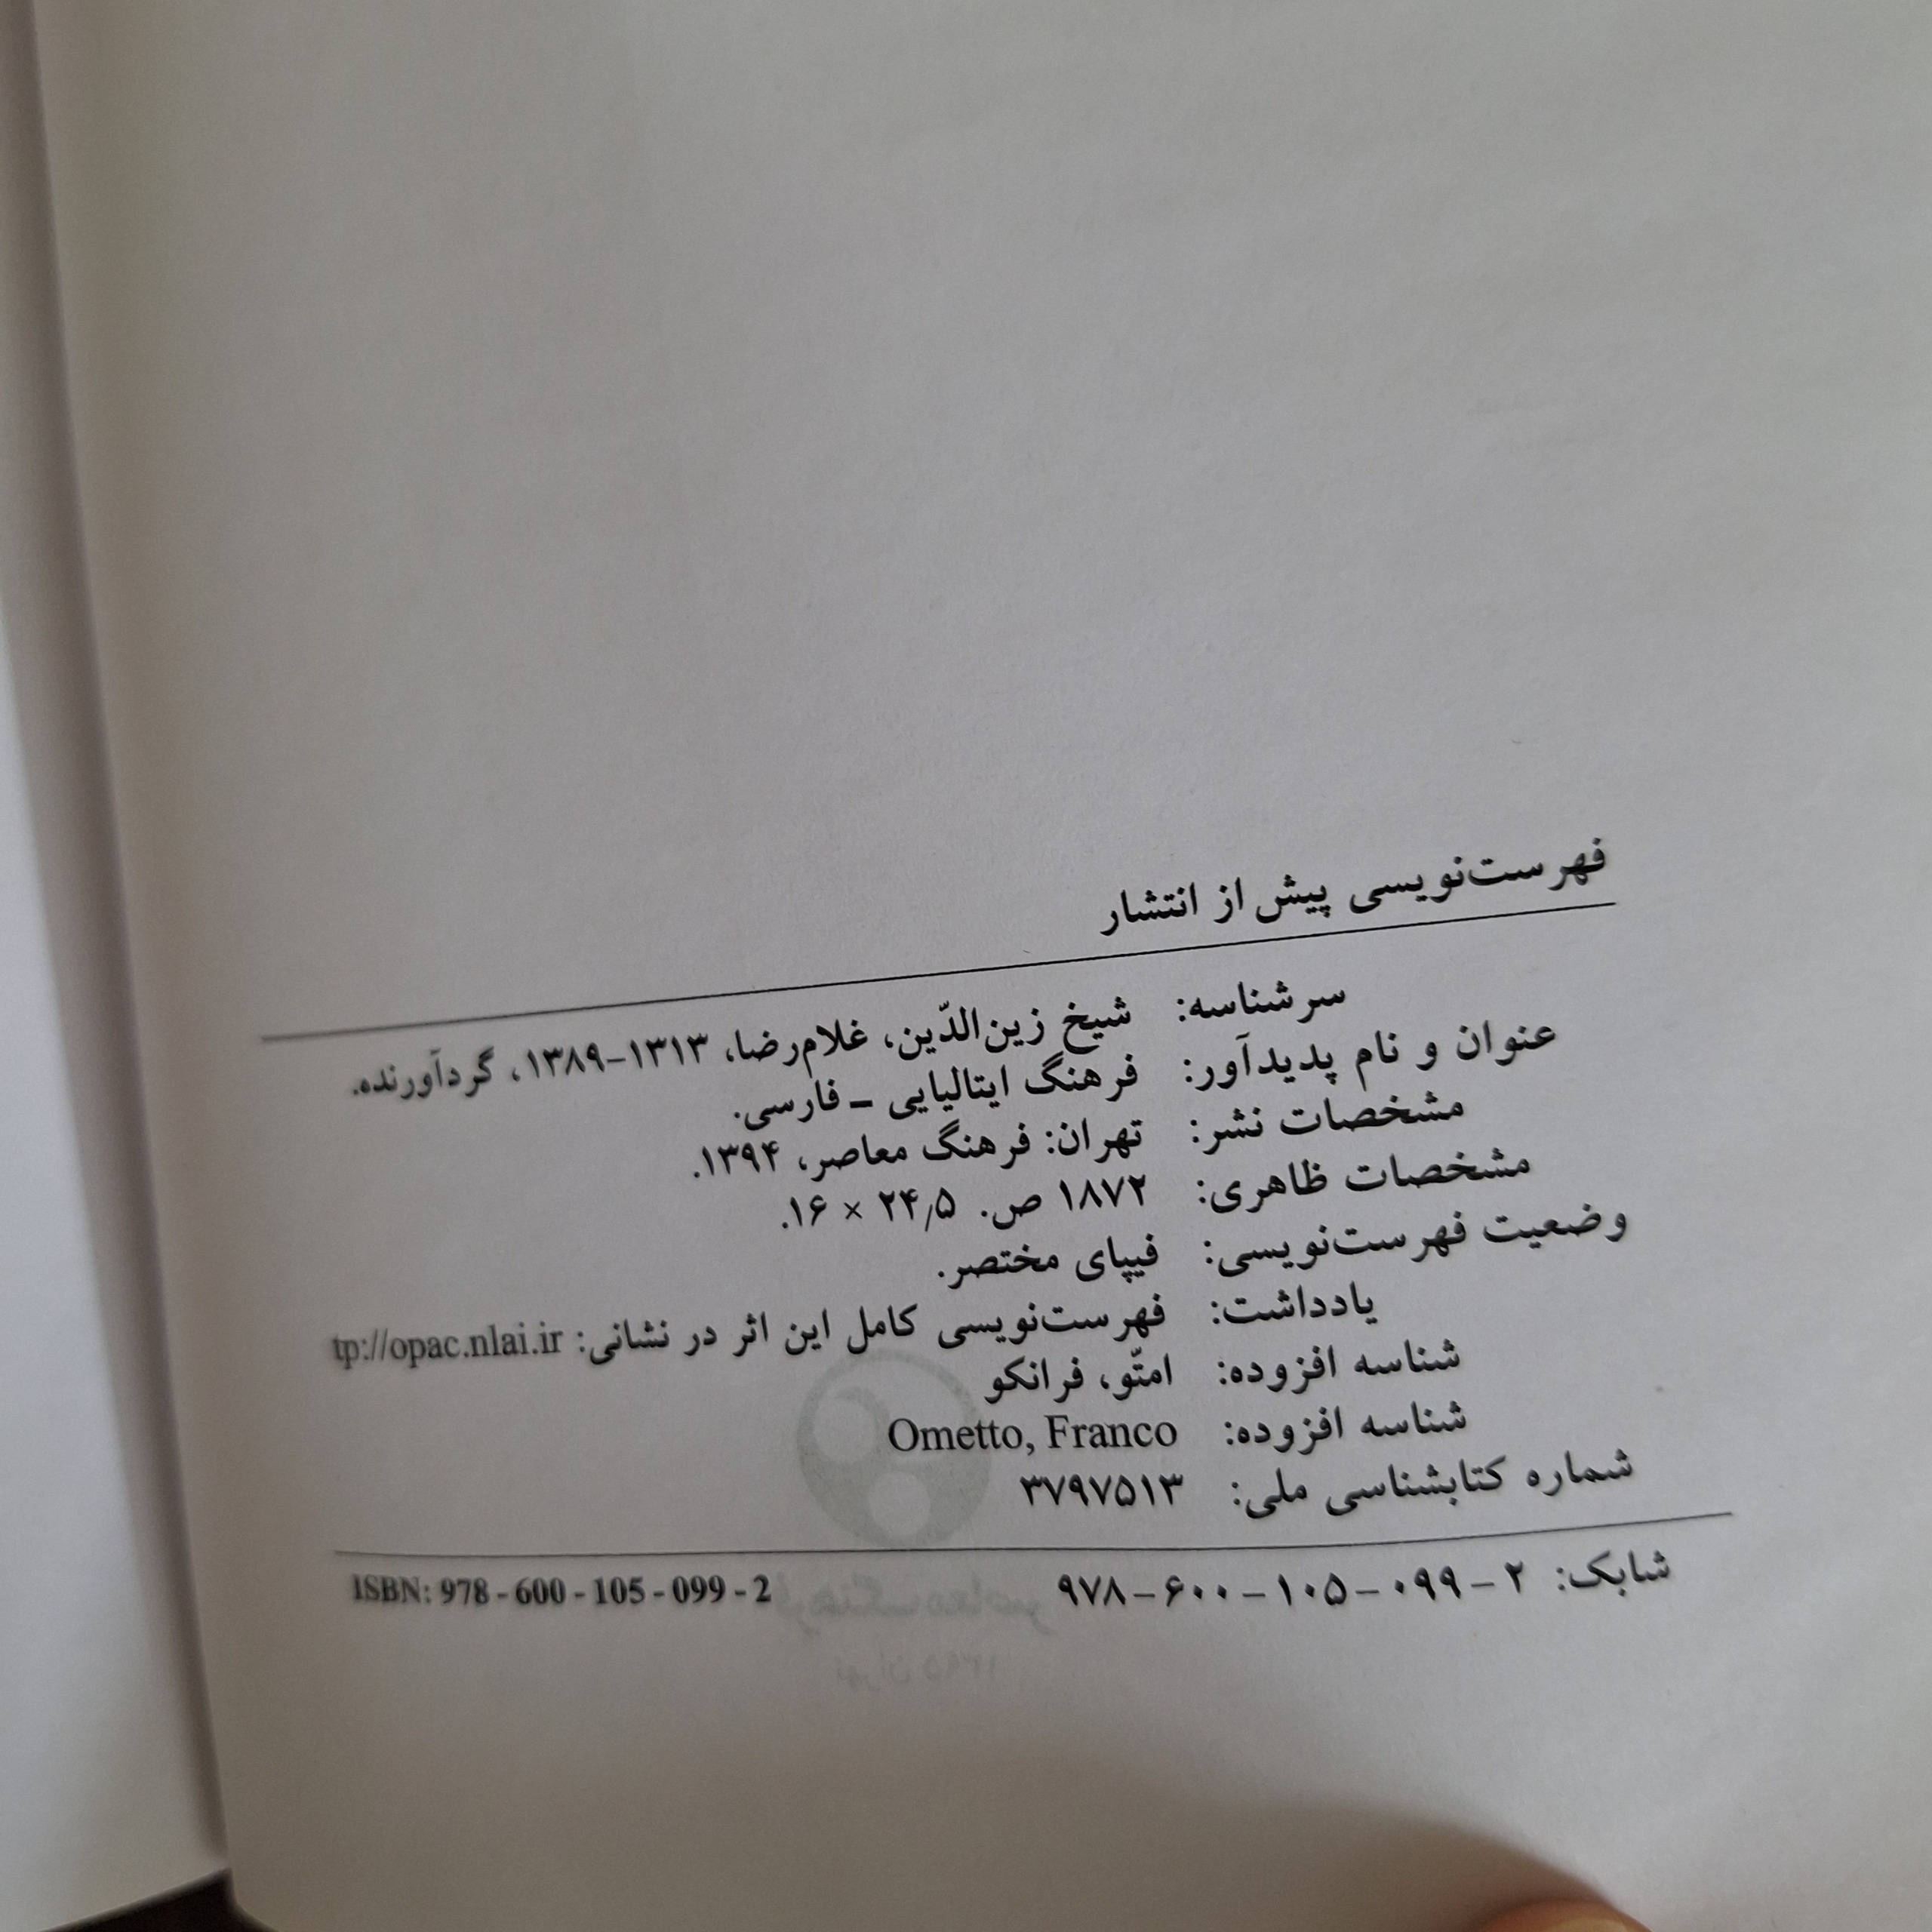 فهرست‌نویسی پیش از انتشار
سرشناسه: شیخ زین‌الدّین، غلام‌رضا، ۱۳۱۳-۱۳۸۹، گردآورنده.
عنوان و نام پدیدآور: فرهنگ ایتالیایی - فارسی.
مشخصات نشر: تهران: فرهنگ معاصر، ۱۳۹۴.
مشخصات ظاهری: ۱۸۷۲ ص. ۲۴٫۵ × ۱۶.
وضعیت فهرست‌نویسی: فیپای مختصر.
یادداشت: فهرست‌نویسی کامل این اثر در نشانی: tp://opac.nlai.ir
شناسه افزوده: امتّو، فرانکو
شناسه افزوده: Ometto, Franco
شماره کتابشناسی ملی: ۳۷۹۷۵۱۳
شابک: ۲ - ۰۹۹ - ۱۰۵ - ۶۰۰ - ۹۷۸ ISBN: 978 - 600 - 105 - 099 - 2
فرهنگ معاصر
تهران ۱۳۹۵